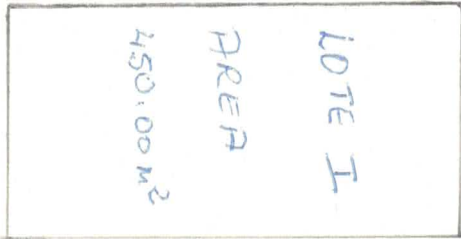 LOTE I
AREA
450.00 M²